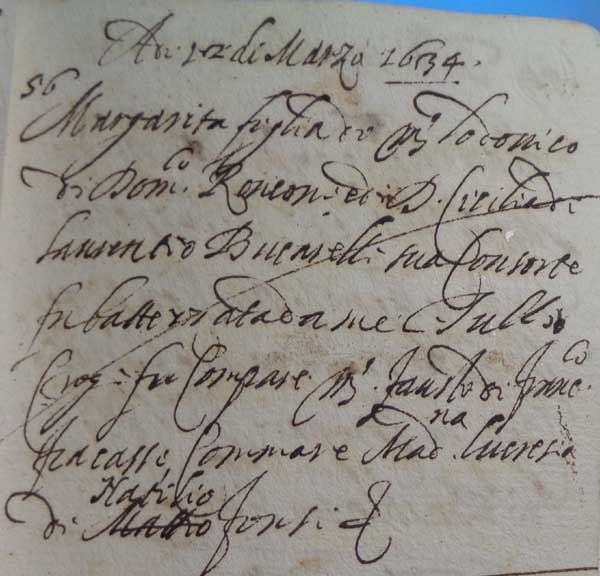 A di 12 di Marzo 1634.
56
Margarita figlia di m.s Lodovico
di Dom.co Ronconi et di D. Cicilia di
Laurentio Bucarelli sua Consorte
fu battezzata da me C. Tullio
fu Compare m.s Fausto di Franc.co
Fracassi Commare Mad.na Lucretia
Natilio
di Fonsi